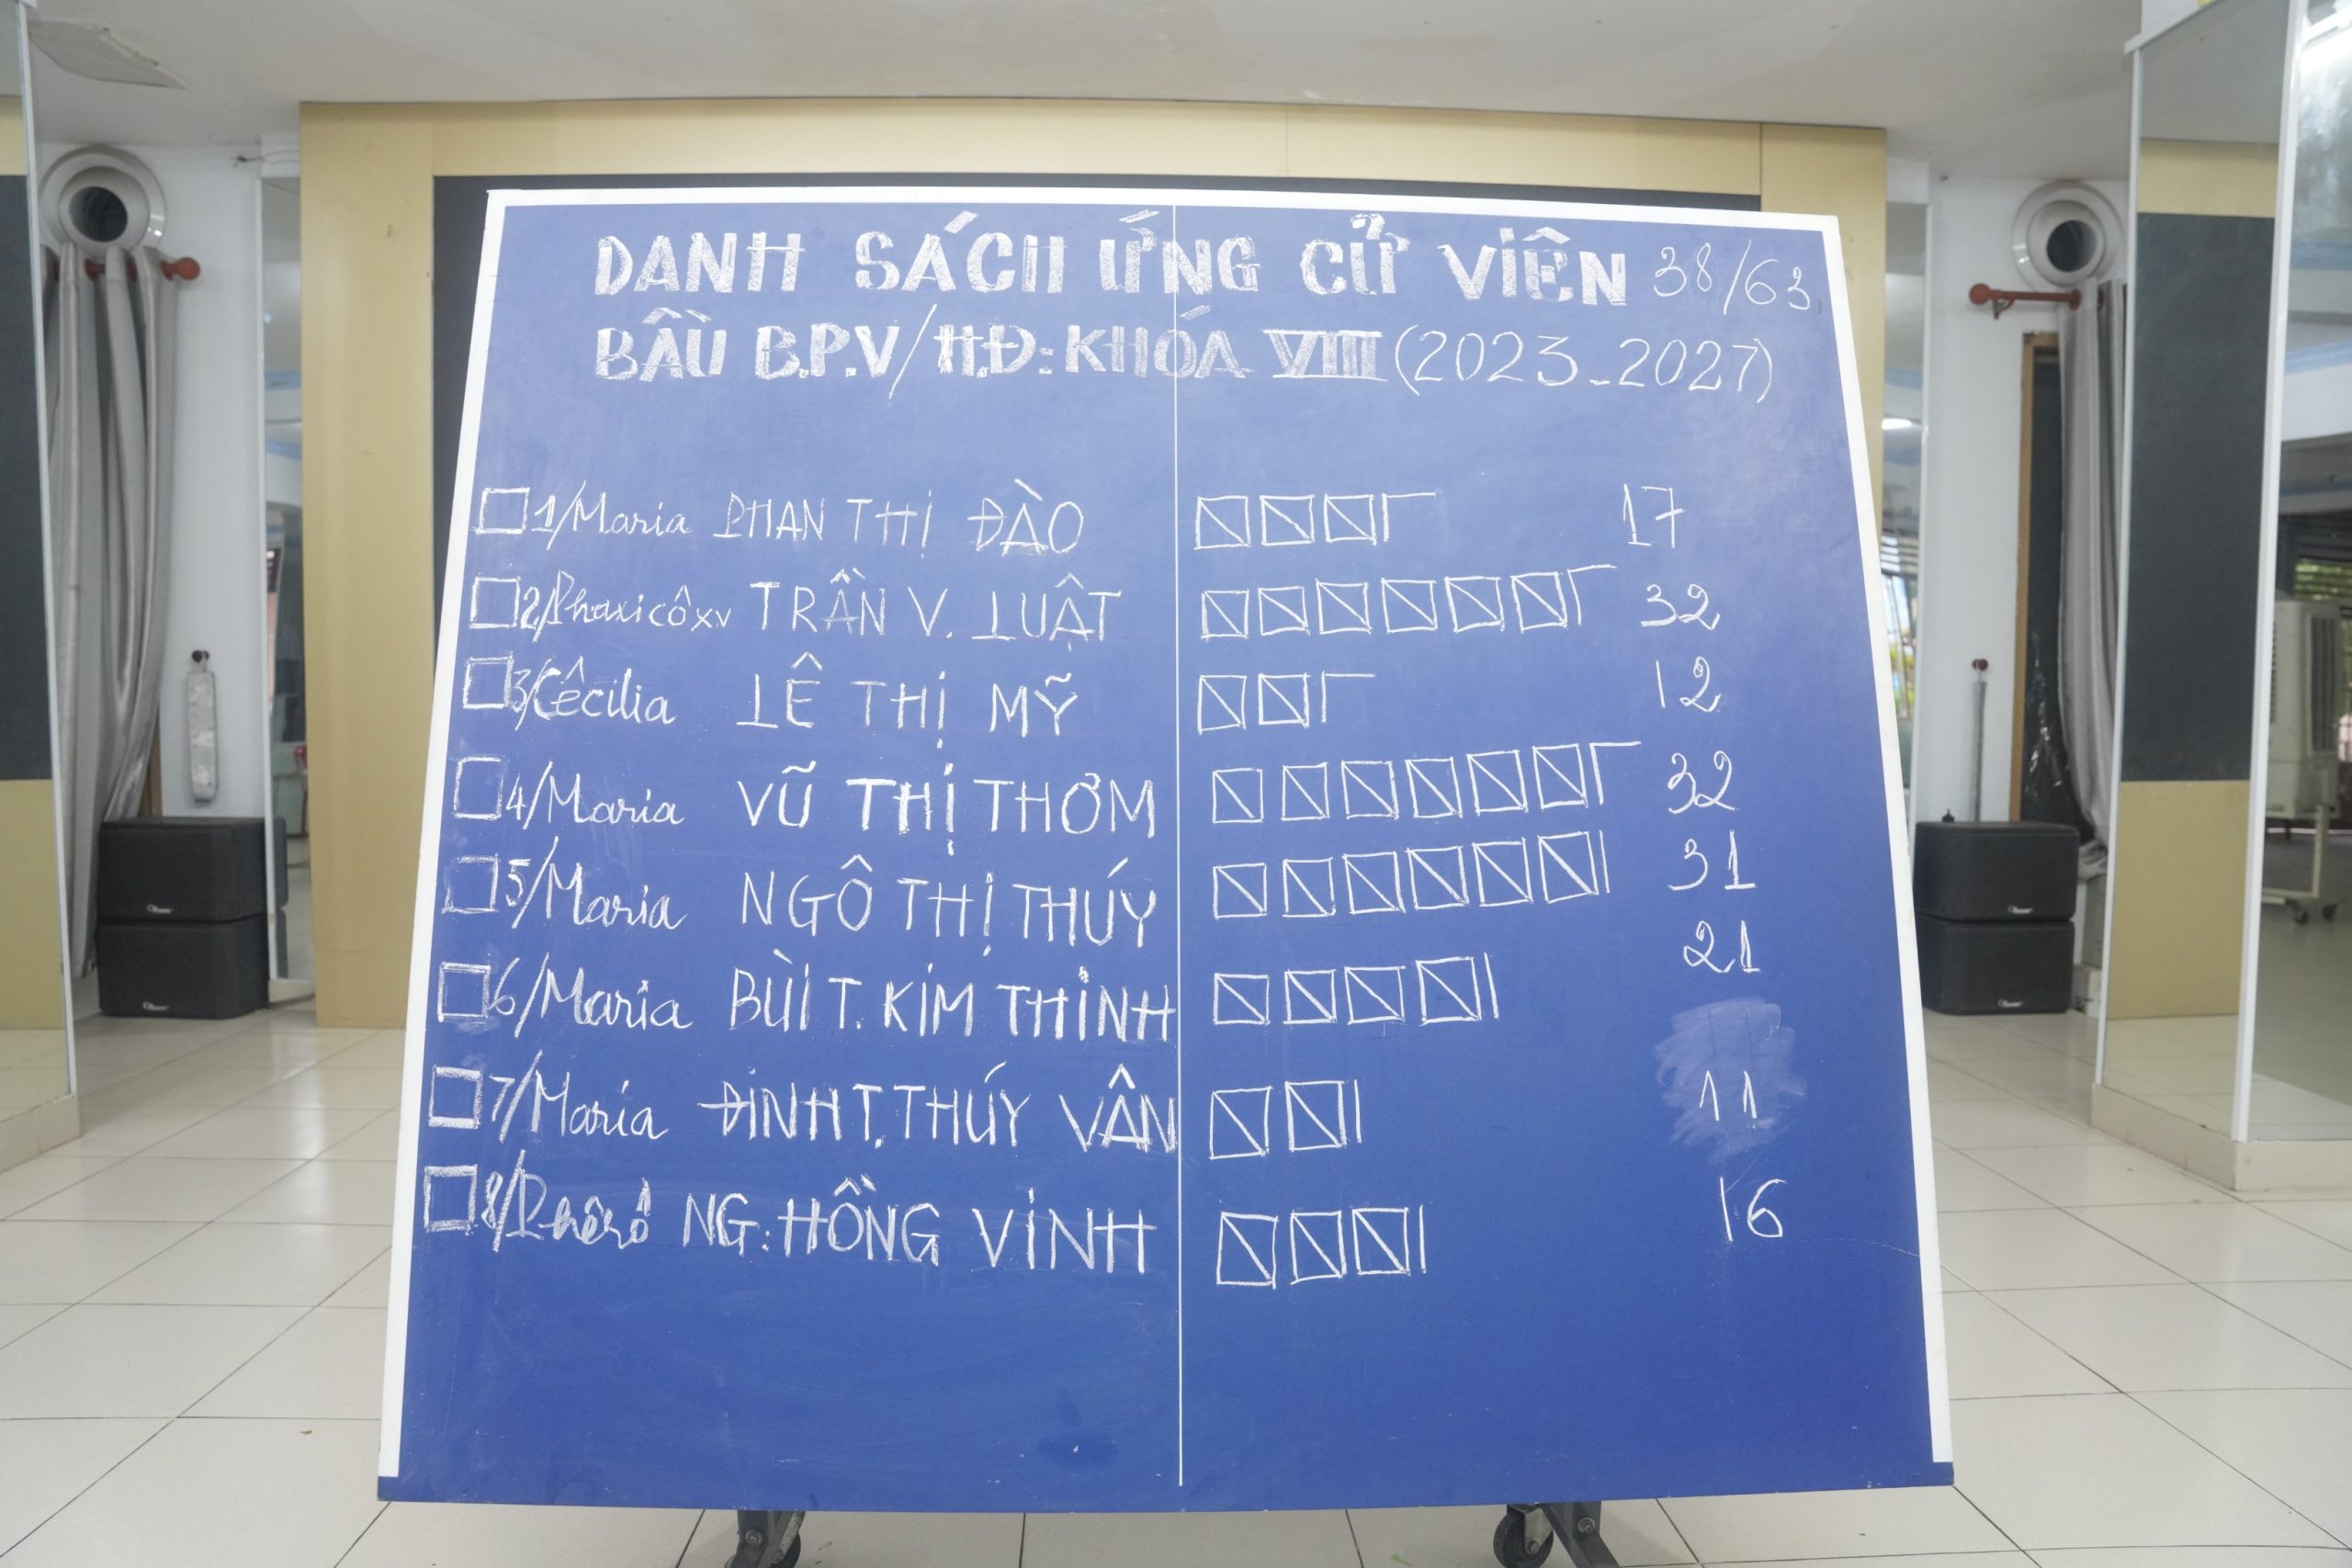 DANH SÁCH ỨNG CỬ VIÊN 38/63
BẦU B.P.V/H.Đ: KHÓA VIII (2023-2027)
1/Maria PHAN THỊ ĐÀO 17
2/Phaxicôxv TRẦN V. LUẬT 32
3/Cêcilia LÊ THỊ MỸ 12
4/Maria VŨ THỊ THƠM 32
5/Maria NGÔ THỊ THÚY 31
6/Maria BÙI T. KIM THINH 21
7/Maria ĐINH T. THÚY VÂN 11
8/Phêrô NG: HỒNG VINH 16